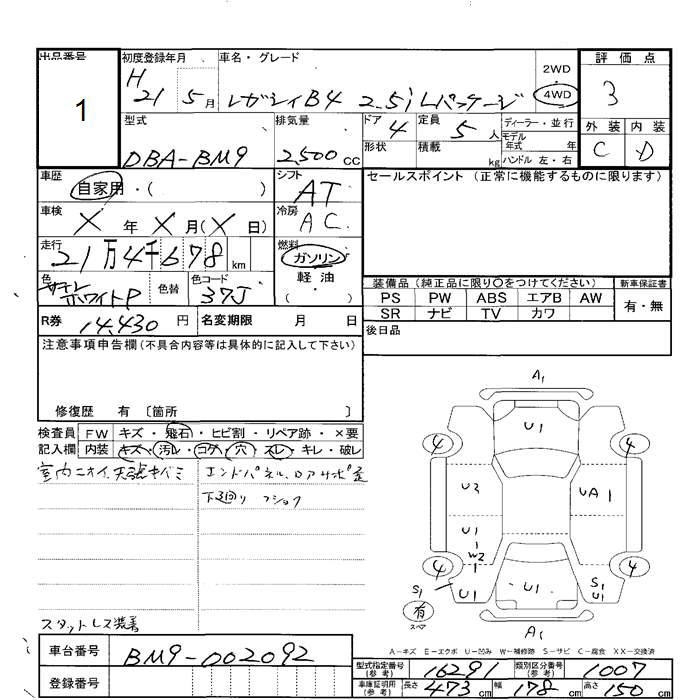 出品番号
1
初度登録年月
H 21 5月
車名・グレード
レガシィB4 2.5i Lパッケージ
2WD
4WD
評価点
3
外装 内装
C D
型式
DBA-BM9
排気量
2,500cc
ドア
4
定員
5人
形状
積載
kg
ディーラー・並行
モデル年式 年
ハンドル 左・右
車歴
自家用・( )
シフト
AT
車検
X年X月(X日)
冷房
AC
走行
21万4千678km
燃料
ガソリン
軽油
( )
色
サテン
ホワイトP
色替
色コード
37J
R券 14,430円
名変期限 月 日
セールスポイント (正常に機能するものに限ります)
装備品 (純正品に限り○をつけてください)
新車保証書
PS PW ABS エアB AW
SR ナビ TV カワ
有・無
後日品
注意事項申告欄(不具合内容等は具体的に記入して下さい)
修復歴 有 〔箇所 〕
検査員 FW キズ・飛石・ヒビ割・リペア跡・×要
記入欄 内装 キズ・汚レ・コゲ・穴・スレ・キレ・破レ
室内ニオイ、天張キバミ
エンドパネル、ロアサポ歪
下廻り フショク
スタットレス装着
A1
U1
4 4
U3
UA1
U1
W2
1
4 4
U1
U1
S1
U1
S1
有
スペア
A1
A-キズ E-エクボ U-凹み W-補修跡 S-サビ C-腐食 XX-交換済
車台番号 BM9-002092
登録番号
型式指定番号(参考) 16291
類別区分番号(参考) 1007
車庫証明用(参考) 長さ 473cm 幅 178cm 高さ 150cm